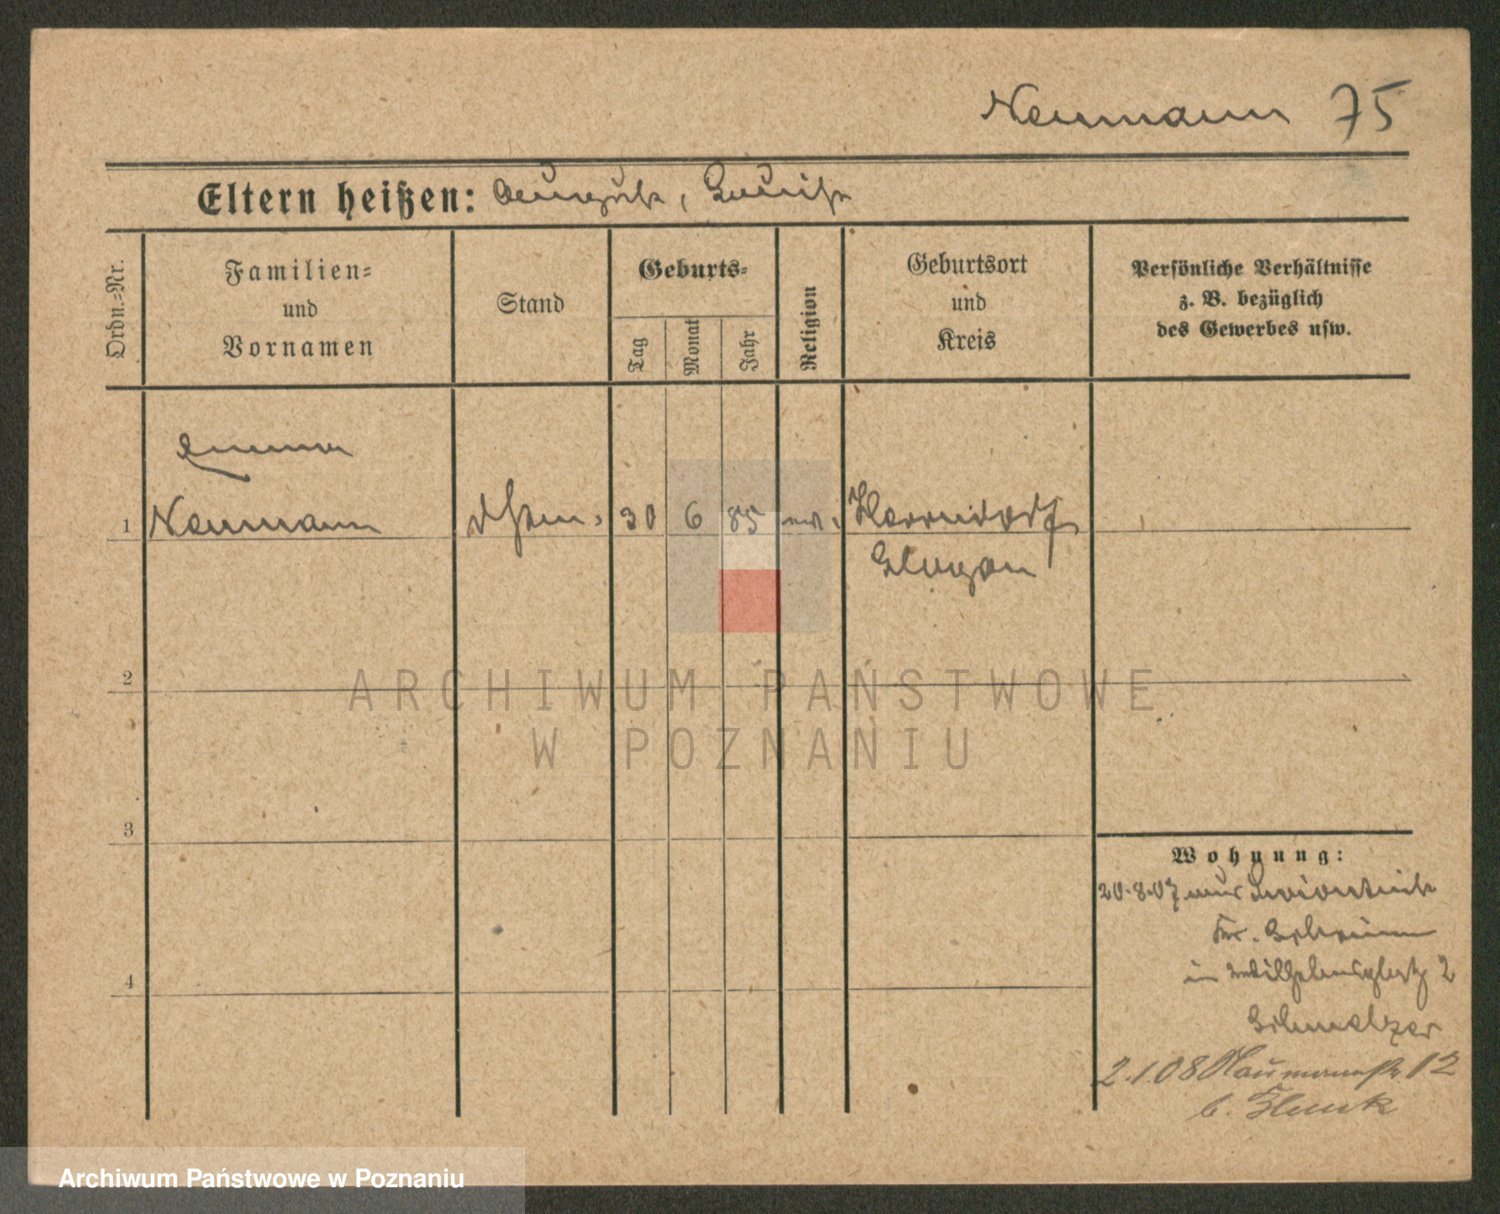 Neumann 75
Eltern heißen: August, Luise
Ordn.-Nr.
Familien-
und
Vornamen
Stand
Geburts-
Tag
Monat
Jahr
Religion
Geburtsort
und
Kreis
Persönliche Verhältnisse
z. B. bezüglich
des Gewerbes usw.
Emma
1 Neumann 30 6 85 ev. Herrndorf
Glogau
2
3
4
Wohnung:
20.8.07
in Wilhelmsplatz 2
Schmelzer
2.1.08 Naumannstr 12
b.
ARCHIWUM PAŃSTWOWE
W POZNANIU
Archiwum Państwowe w Poznaniu